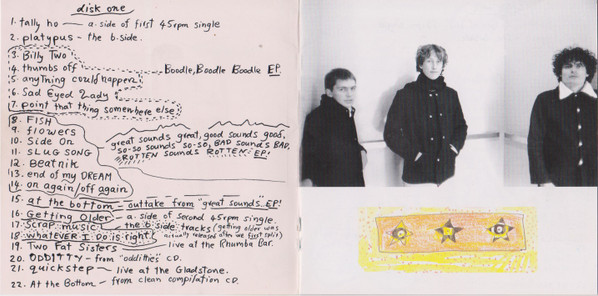 disk one
1. tally ho — a. side of first 45rpm single
2. platypus - the b. side.
3. Billy Two
4. thumbs off
Boodle, Boodle Boodle EP.
5. anything could happen
6. Sad Eyed Lady
7. point that thing somewhere else
8. FISH
9. flowers
great sounds great, good sounds good,
10. Side On
so-so sounds so-so, BAD sounds BAD,
11. SLUG SONG
ROTTEN sounds ROTTEN. EP!
12. Beatnik
13. end of my DREAM
14. on again/off again
15. at the bottom — outtake from "great sounds" EP!
16. Getting Older — a. side of second 45rpm single.
17. Scrap music — the b side tracks (getting older was
18. whatever I do is right actually released after we first split)
19. Two Fat Sisters — live at the Rhumba Bar.
20. ODDITTY - from "oddities" CD.
21. quickstep — live at the Gladstone.
22. At the Bottom — from clean compilation CD.